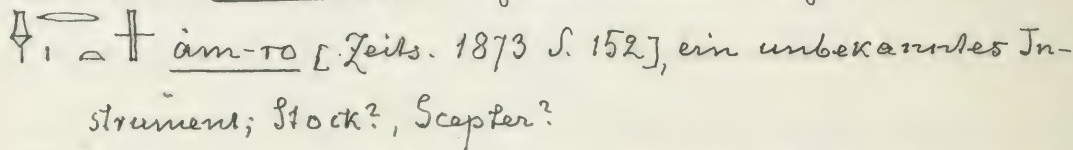 ȧm-ro [Zeits. 1873 S. 152], ein unbekanntes In-
strument; Stock?, Scepter?